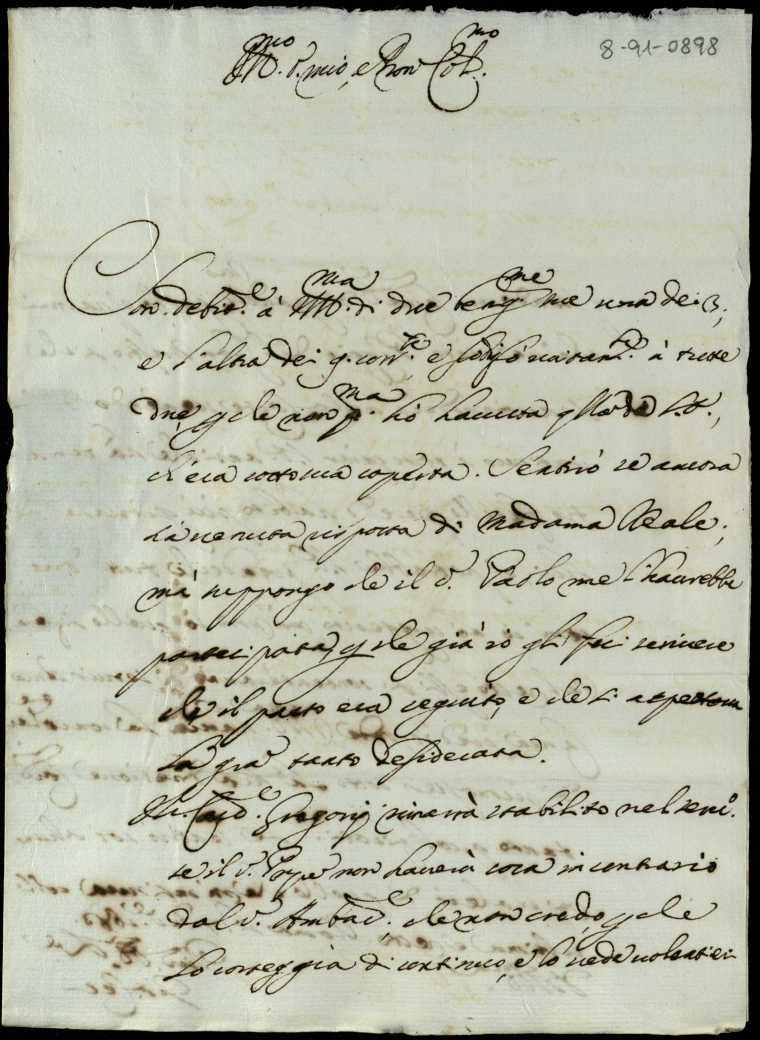 8-91-0898
Ill.mo S. mio, e Pron Col.mo
Son debit.e à V. Ill.ma di due benig.me una dei 3,
e l'altra dei 9. corr.te e à tutte
due, p che non p.ma hò hauuta q.lla de
ch'era sotto sua coperta. Sentirò se ancora
sia uenuta risposta di Madama Reale;
mà suppongo che il S. Paolo me l'haurebbe
partecipata, p che già io gli feci scriuere
che il parto era seguito, e che si aspettaua
la gra tanto desiderata.
Il Card.e Gregorij rimarrà stabilito nel serui.o
se il S. Prpe non hauerà cosa in contrario
dal S. Ambac.e, che non credo, p che
lo corteggia di continuo, e lo uede uolentieri